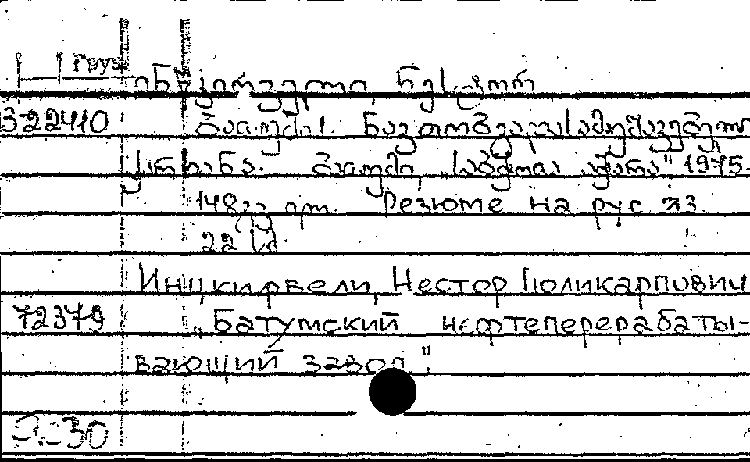 Груз
ინწკირველი, ნესტორ
322410 ბათუმის ნავთობგადასამუშავებელი
ქარხანა. ბათუმი, „საბჭოთა აჭარა" 1975.
148გვ. ილ. Резюме на рус яз.
22 კ.
Инцкирвели, Нестор Поликарпович
72379 „Батумский нефтеперерабаты-
вающий завод".
30